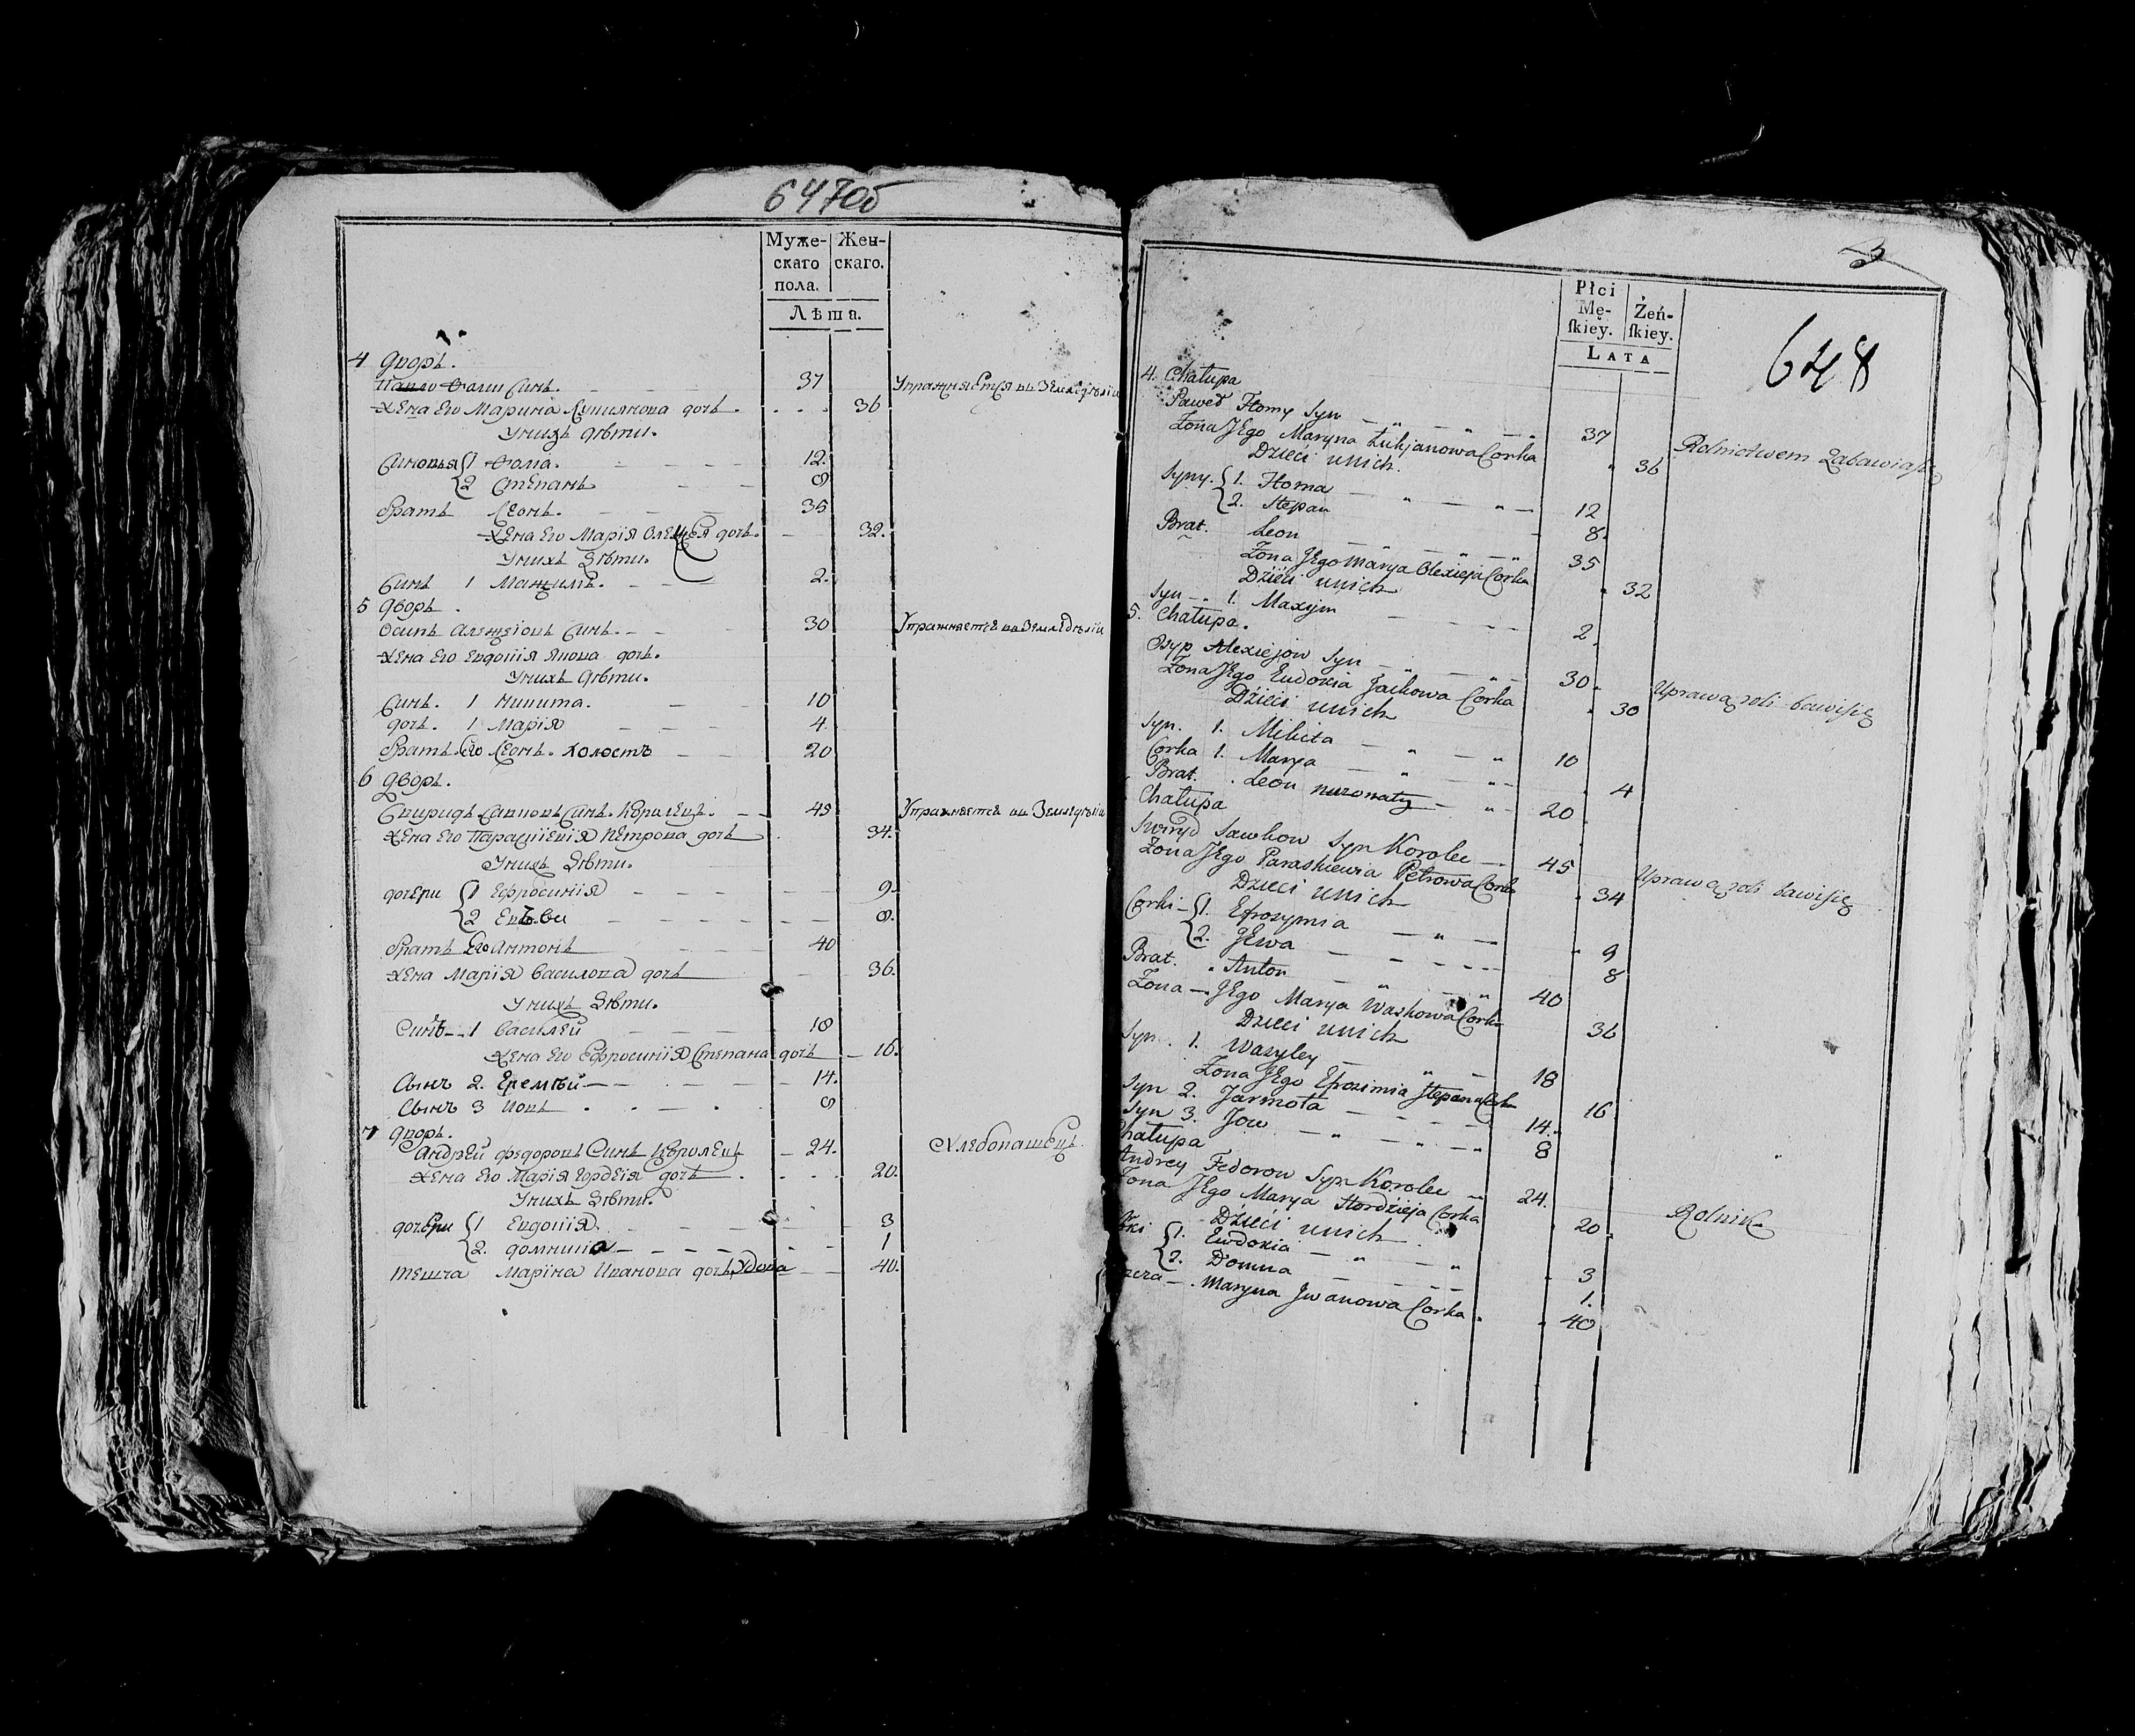 647об
Муже-
скаго
пола.
Жен-
скаго.
Лѣта.
4 Дворъ.
Павло Фоми Синъ. 37 Упражняется въ Земледѣліи
Жена Его Марина Лукиянова дочь. 36
У нихъ Дѣти.
Синовья 1 Фома. 12.
2 Степанъ 8
Братъ Леонъ. 35
Жена Его Марія Олексѣя дочь. 32.
У нихъ Дѣти.
Синъ 1 Макзимъ. 2.
5 Дворъ.
Осипъ Алекзіовъ Синъ. 30 Упражняется въ Земледѣліи
Жена Его Евдокія Якова дочь.
У нихъ Дѣти.
Синъ. 1 Микита. 10
Дочь. 1 Марія 4
Братъ Его Леонъ. холостъ 20
6 Дворъ.
Свиридъ Савковъ Синъ Королецъ. 45 Упражняется въ Земледѣліи
Жена Его Параскіевія Петрова дочь 34.
У нихъ Дѣти.
дочери 1 Ефросинія 9.
2 8.
Братъ Его Антонъ 40
Жена Марія Василова дочь 36.
У нихъ Дѣти.
Синъ 1 Василей 18
Жена Его Ефросинія Степана дочь 16.
Сынъ 2. Еремѣй 14.
Сынъ 3 Іовъ 8
7 Дворъ.
Андрей Федоровъ Синъ Королецъ 24. Хлебопашецъ.
Жена Его Марія Гордѣія дочь 20.
У нихъ Дѣти.
дочери 1 Евдокія. 3
2. Домникия 1
теща Марина Иванова дочь, Удова 40.
3
648
Płci
Mę-
ſkiey.
Żeń-
ſkiey.
LATA
4. Chałupa
Paweł Homy Syn 37 Rolnictwem Zabawia się
Żona Jego Maryna Łukjanowa Corka 36
Dzieci u nich.
Syny. 1. Homa 12
2. Stepan 8.
Brat. Leon 35
Żona Jego Marya Olexieja Corka 32
Dzieci u nich
Syn 1. Maxym 2.
5. Chałupa.
Osyp Alexiejow Syn 30. Uprawą roli bawi się
Żona Jego Eudoxia Jackowa Corka 30
Dzieci u nich
Syn. 1. Mikita 10
Corka 1. Marya 4
Brat. Leon nieżonaty 20
Chałupa
Swiryd Sawkow Syn Korolec 45 Uprawą roli bawi się
Żona Jego Paraskiewia Petrowa Corka 34
Dzieci u nich
Corki 1. Efrozymia 9
2. Jewa 8
Brat. Anton 40
Żona Jego Marya Waskowa Corka 36
Dzieci u nich
Syn. 1. Wasyley 18
Żona Jego Efrozimia Stepana Corka 16
Syn 2. Jarmoła 14.
Syn 3. Jow 8
Chałupa
Andrey Fedorow Syn Korolec 24. Rolnik
Żona Jego Marya Hordzieja Corka 20.
Dzieci u nich
1. Ewdoxia 3
2. Domna 1.
Maryna Jwanowa Corka 40